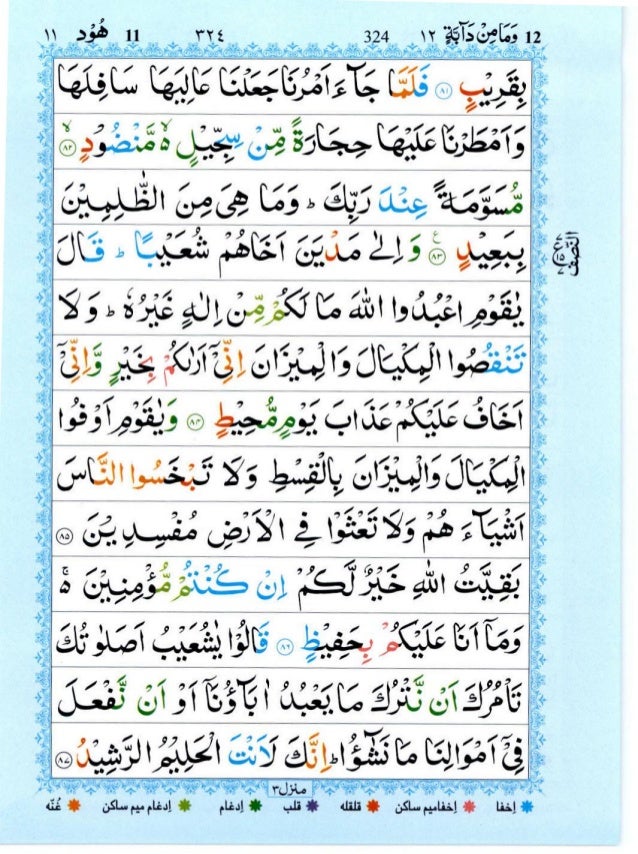 12 وَمَا مِنْ دَآبَّةٍ ١٢ 324 ٣٢٤ 11 هُوْد ١١
بِقَرِيْبٍ ۝٨١ فَلَمَّا جَآءَ اَمْرُنَا جَعَلْنَا عَالِيَهَا سَافِلَهَا
وَاَمْطَرْنَا عَلَيْهَا حِجَارَةً مِّنْ سِجِّيْلٍ ۙ مَّنْضُوْدٍ ۝٨٢ ۙ
مُّسَوَّمَةً عِنْدَ رَبِّكَ ؕ وَمَا هِىَ مِنَ الظّٰلِمِيْنَ
بِبَعِيْدٍ ۝٨٣ ع وَ اِلٰى مَدْيَنَ اَخَاهُمْ شُعَيْبًا ؕ قَالَ
يٰقَوْمِ اعْبُدُوا اللّٰهَ مَا لَكُمْ مِّنْ اِلٰهٍ غَيْرُهٗ ؕ وَلَا
تَنْقُصُوا الْمِكْيَالَ وَالْمِيْزَانَ اِنِّىْۤ اَرٰىكُمْ بِخَيْرٍ وَّاِنِّىْۤ
اَخَافُ عَلَيْكُمْ عَذَابَ يَوْمٍ مُّحِيْطٍ ۝٨٤ وَيٰقَوْمِ اَوْفُوا
الْمِكْيَالَ وَالْمِيْزَانَ بِالْقِسْطِ وَلَا تَبْخَسُوا النَّاسَ
اَشْيَآءَهُمْ وَلَا تَعْثَوْا فِى الْاَرْضِ مُفْسِدِيْنَ ۝٨٥
بَقِيَّتُ اللّٰهِ خَيْرٌ لَّكُمْ اِنْ كُنْتُمْ مُّؤْمِنِيْنَ ۚ
وَمَاۤ اَنَا عَلَيْكُمْ بِحَفِيْظٍ ۝٨٦ قَالُوْا يٰشُعَيْبُ اَصَلٰوتُكَ
تَاْمُرُكَ اَنْ نَّتْرُكَ مَا يَعْبُدُ اٰبَآؤُنَاۤ اَوْ اَنْ نَّفْعَلَ
فِىْۤ اَمْوَالِنَا مَا نَشٰٓؤُا ؕ اِنَّكَ لَاَنْتَ الْحَلِيْمُ الرَّشِيْدُ ۝٨٧
النصف
منزل ٣
اِخفا اِخفامیم ساکن قلقله قلب اِدغام اِدغام میم ساکن غُنّه